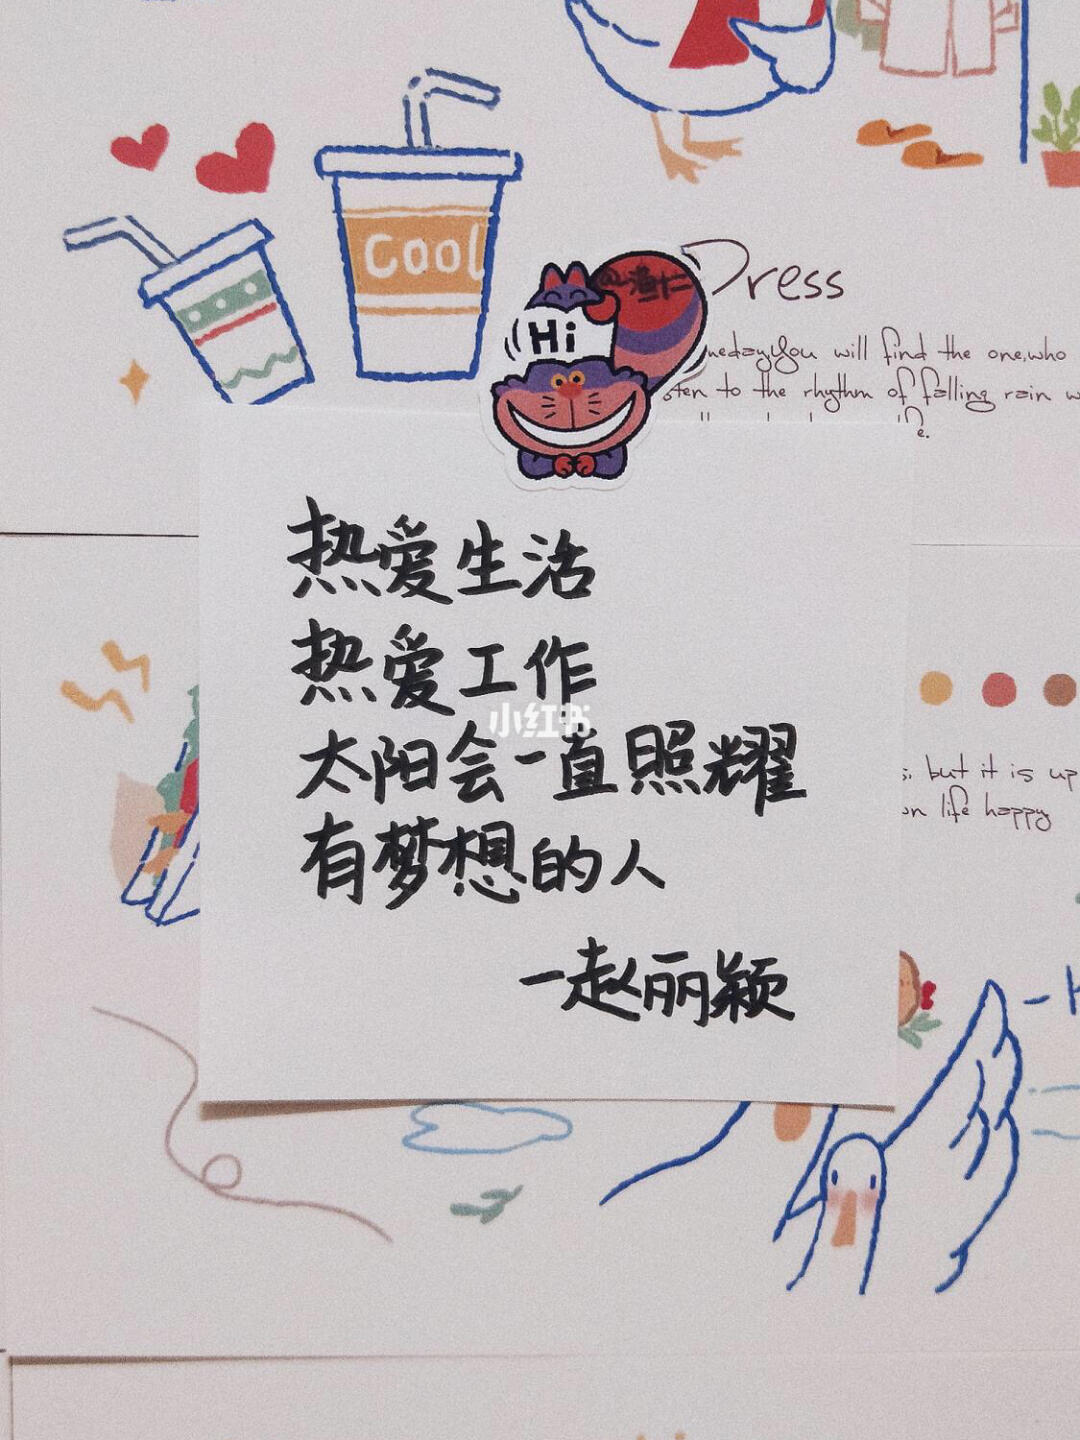 Cool
Hi
Dress
you will find the one,who
to the rhythm of falling rain
热爱生活
热爱工作
小红书
太阳会一直照耀
有梦想的人
一赵丽颖
but it is up
life happy